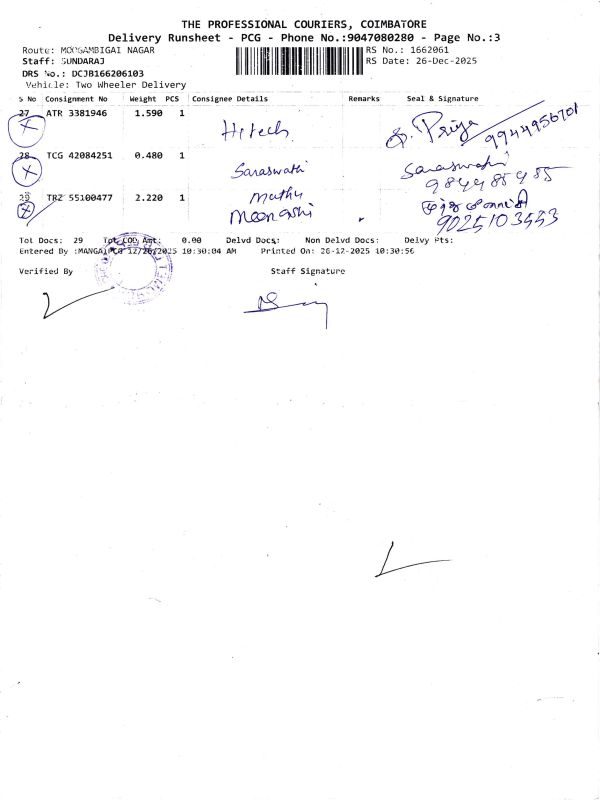 THE PROFESSIONAL COURIERS, COIMBATORE
Delivery Runsheet - PCG - Phone No.:9047080280 - Page No.:3
Route: MOOGAMBIGAI NAGAR RS No.: 1662061
Staff: SUNDARAJ RS Date: 26-Dec-2025
DRS No.: DCJB166206103
Vehicle: Two Wheeler Delivery
S No Consignment No Weight PCS Consignee Details Remarks Seal & Signature
27 ATR 3381946 1.590 1 Hitech S. Priya 9944956701
28 TCG 42084251 0.480 1 Saraswathi Saraswathi
984485485
29 TRZ 55100477 2.220 1 muthu
meenashi 9025103553
Tot Docs: 29 Tot COD Amt: 0.00 Delvd Docs: Non Delvd Docs: Delvy Pts:
Entered By :MANGAI PCG 12/26/2025 10:30:04 AM Printed On: 26-12-2025 10:30:56
Verified By Staff Signature